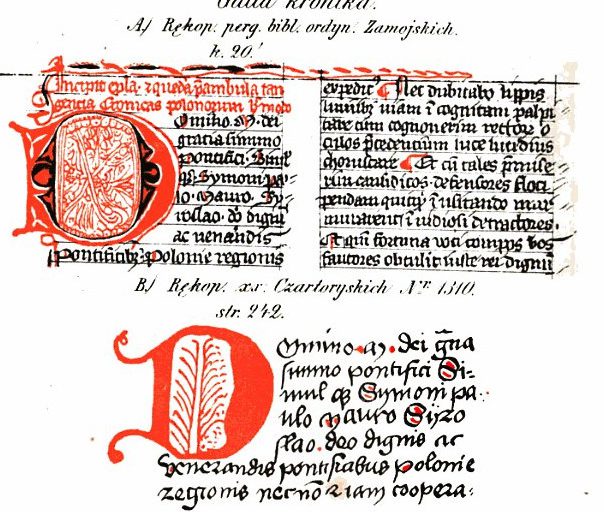 Galla kronika.
A) Rękop. perg. bibl. ordyn. Zamojskich.
k. 20.'
Incipit epla. & queda p̄ambula tan
gencia Cronicas polonorum
Omino. M. dei
gracia summo
pontifici. Simul
qȝ. Symoni pa-
lo. Mauro. Sy
rosllao. do dign
ac venandis
Pontificibȝ. Polonie regionis
expedic
Nec dubitabo lippis
luminibȝ viam ī cognitam palpi
tare cum cognoverim rectore o
culos p̄cedencium luce lucidius
choruscare Et cū tales p̄mise
rim causidicos. defensores floci
pendam quicqȝ ī visitando mur
muraverit ī vidiosi detractores.
Et qm̄ fortuna voti compos vos
fautores obtulit iuste rei dignū
B) Rękop. xv. Czartoryskich Nr. 1310.
str. 242.
Omino. M. dei gr̄na
summo pontifici Si-
mul qȝ Symoni pa
ulo Mauro Syro
slao. deo dignis ac
Venerandis pontificabus polonie
regionis nec nō & iam coopera-